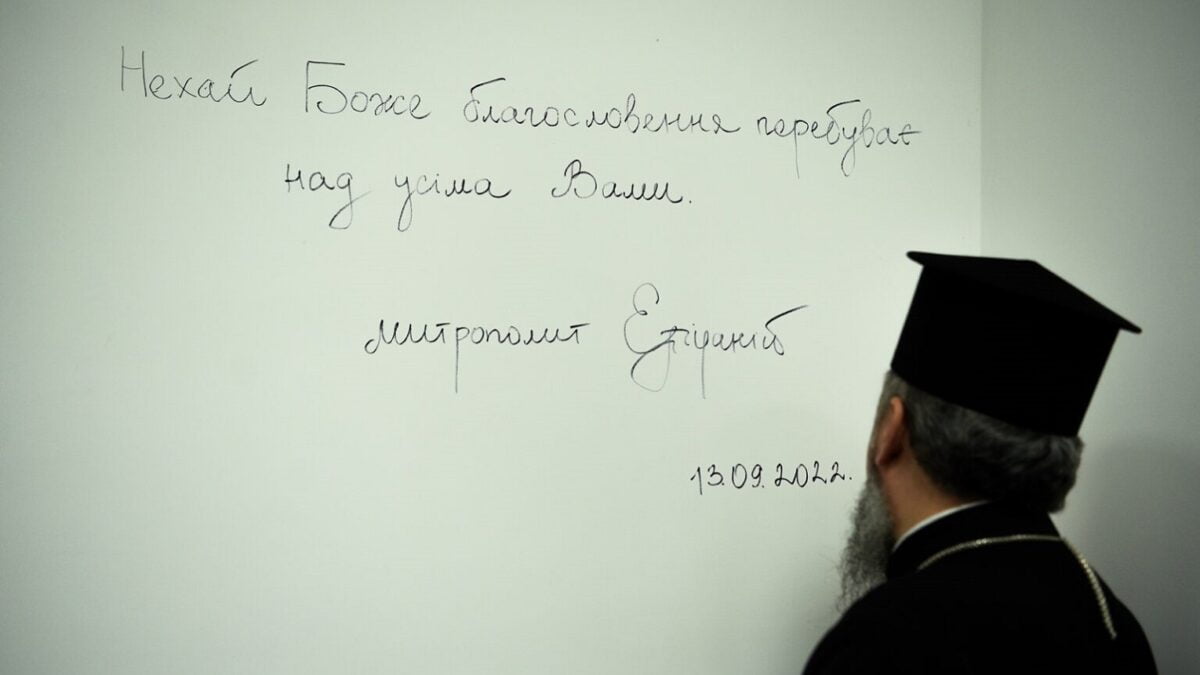 Нехай Боже благословення перебуває
над усіма Вами.
митрополит Епіфаній
13.09.2022.